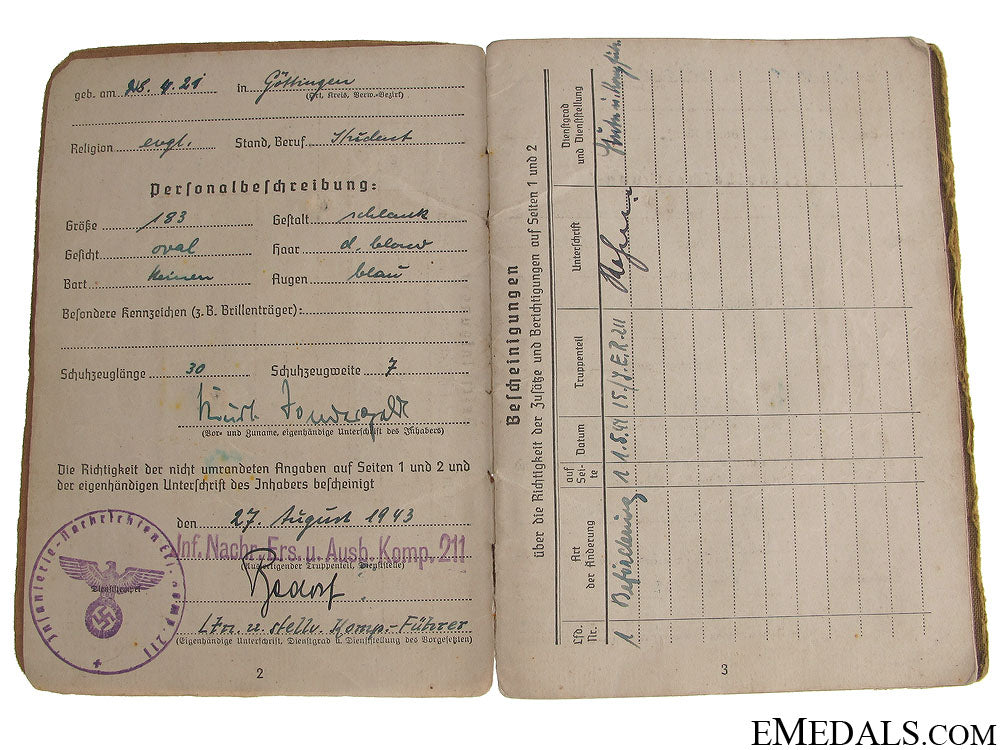 geb. am 28. 9. 21 in Göttingen
(Ort, Kreis, Verw.-Bezirk)
Religion evgl. Stand, Beruf Student
Personalbeschreibung:
Größe 183 Gestalt schlank
Gesicht oval Haar d. blond
Bart keinen Augen blau
Besondere Kennzeichen (z. B. Brillenträger):
Schuhzeuglänge 30 Schuhzeugweite 7
Kurt
(Vor- und Zuname, eigenhändige Unterschrift des Inhabers)
Die Richtigkeit der nicht umrandeten Angaben auf Seiten 1 und 2 und
der eigenhändigen Unterschrift des Inhabers bescheinigt
den 27. August 1943
Inf. Nachr. Ers. u. Ausb. Komp. 211
(Ausfertigender Truppenteil, Dienststelle)
Dienststempel
Ltn. u. stellv. Komp.-Führer
(Eigenhändige Unterschrift, Dienstgrad u. Dienststellung des Vorgesetzten)
2
Bescheinigungen
über die Richtigkeit der Zusätze und Berichtigungen auf Seiten 1 und 2
Lfd. Nr. Art der Änderung auf Seite Datum Truppenteil Unterschrift Dienstgrad und Dienststellung
1 Beförderung 1
3
EMEDALS.COM